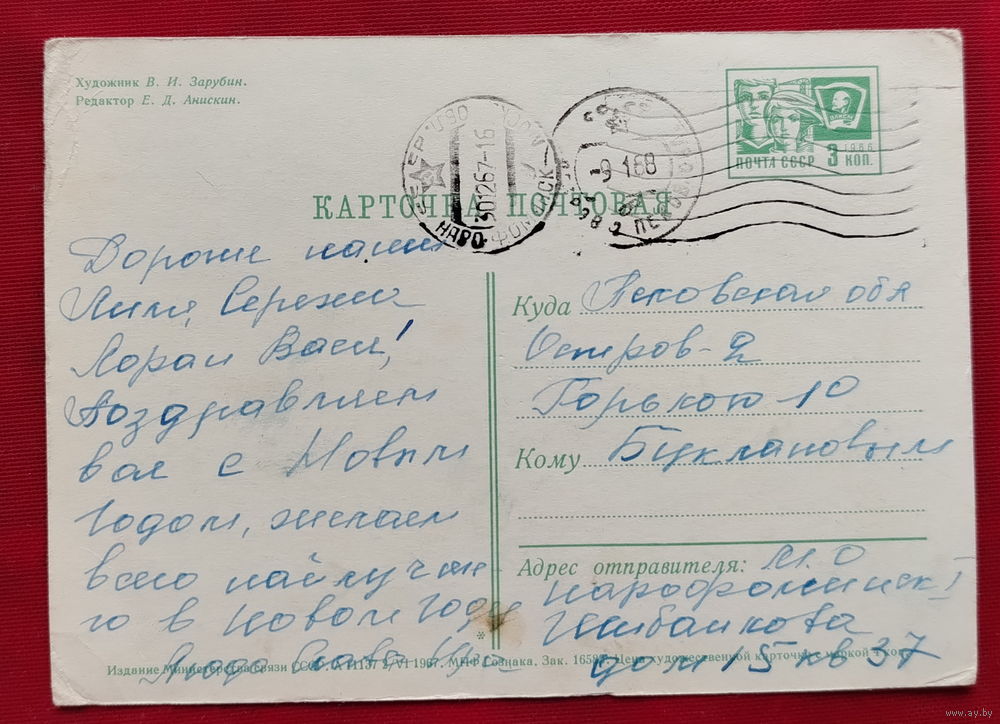 Художник В. И. Зарубин.
Редактор Е. Д. Анискин.
ПОЧТА СССР 3 КОП.
1966
ВЛКСМ
НАРО-ФОМИНСК
301267-16
-9 168
КАРТОЧКА ПОЧТОВАЯ
Дорогие наши
Лиля, Сережа
Лора и Вася!
Поздравляем
вас с Новым
Годом, желаем
всего найлучше
го в Новом Году
Куда Псковская обл
Остров-2
Горького 10
Кому Буклановым
Адрес отправителя: М.О
Нарофоминск-1
Шибанкова
дом 15 кв 37
Издание Министерства связи СССР. 1967. МПФ Гознака. Зак. Цена художественной карточки с маркой 4 коп.
www.ay.by